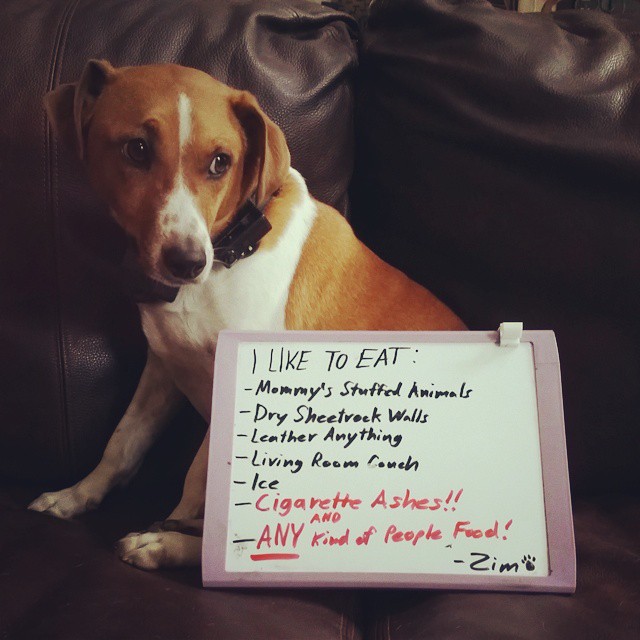 I LIKE TO EAT:
- Mommy's Stuffed Animals
- Dry Sheetrock Walls
- Leather Anything
- Living Room Couch
- Ice
- Cigarette Ashes!!
AND
- ANY Kind of People Food!
- Zim